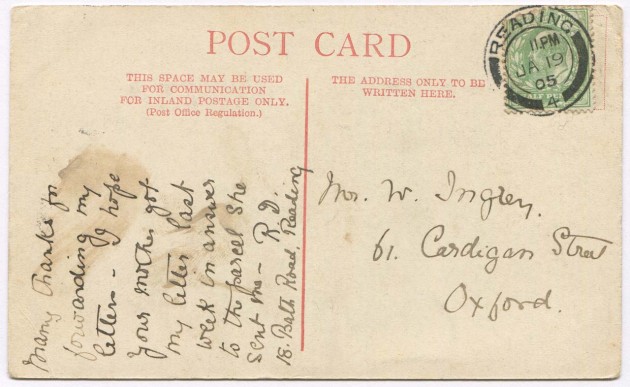 POST CARD
THIS SPACE MAY BE USED
FOR COMMUNICATION
FOR INLAND POSTAGE ONLY.
(Post Office Regulation.)
THE ADDRESS ONLY TO BE
WRITTEN HERE.
READING
11.PM
JA 19
05
4
Many thanks for
forwarding my
letters - I hope
your mother got
my letter last
week in answer
to the parcel she
sent me - R.D.
18. Bath Road, Reading
Mr. W.
61. Cardigan Street
Oxford.